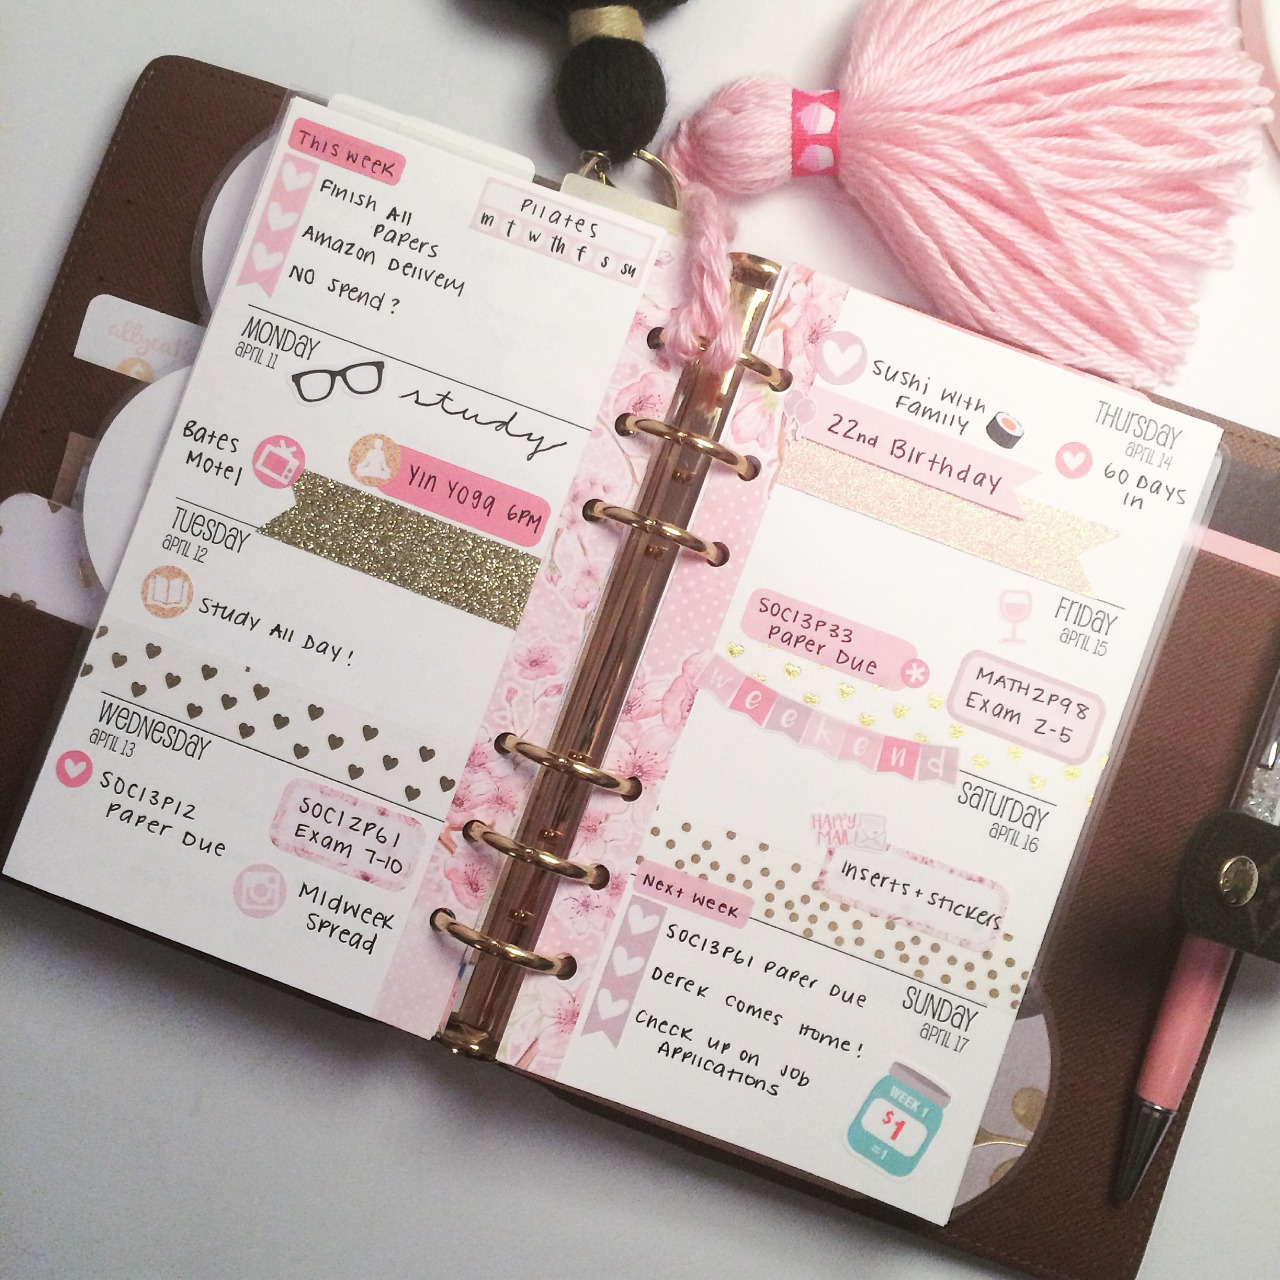 This week
Finish All
Papers
Amazon Delivery
No Spend?
Pilates
m t w th f s su
MONDAY
APRIL 11
study
Bates
Motel
Yin Yoga 6PM
TUESDAY
APRIL 12
Study All Day!
WEDNESDAY
APRIL 13
SOC13P12
Paper Due
SOC12P61
Exam 7-10
Midweek
Spread
Sushi with
Family
22nd Birthday
THURSDAY
APRIL 14
60 Days
in
FRIDAY
APRIL 15
SOC13P33
Paper Due
MATH2P98
Exam 2-5
weekend
SATURDAY
APRIL 16
HAPPY
MAIL
Inserts + stickers
Next week
SOC13P61 Paper Due
Derek comes Home!
Check up on Job
Applications
SUNDAY
APRIL 17
WEEK 1
$1
=1